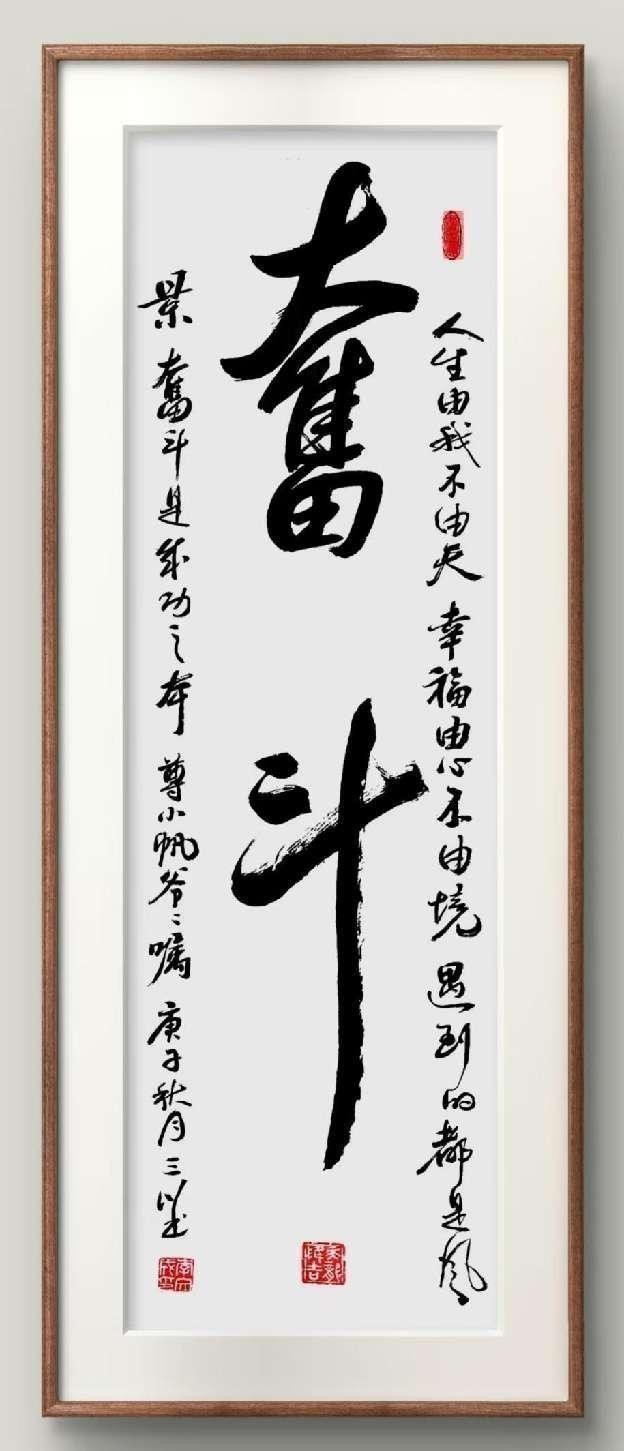 人生由我不由天 幸福由心不由境 遇到的都是风
奮斗
景 奮斗是成功之本 尊小帆爷〻嘱 庚子秋月